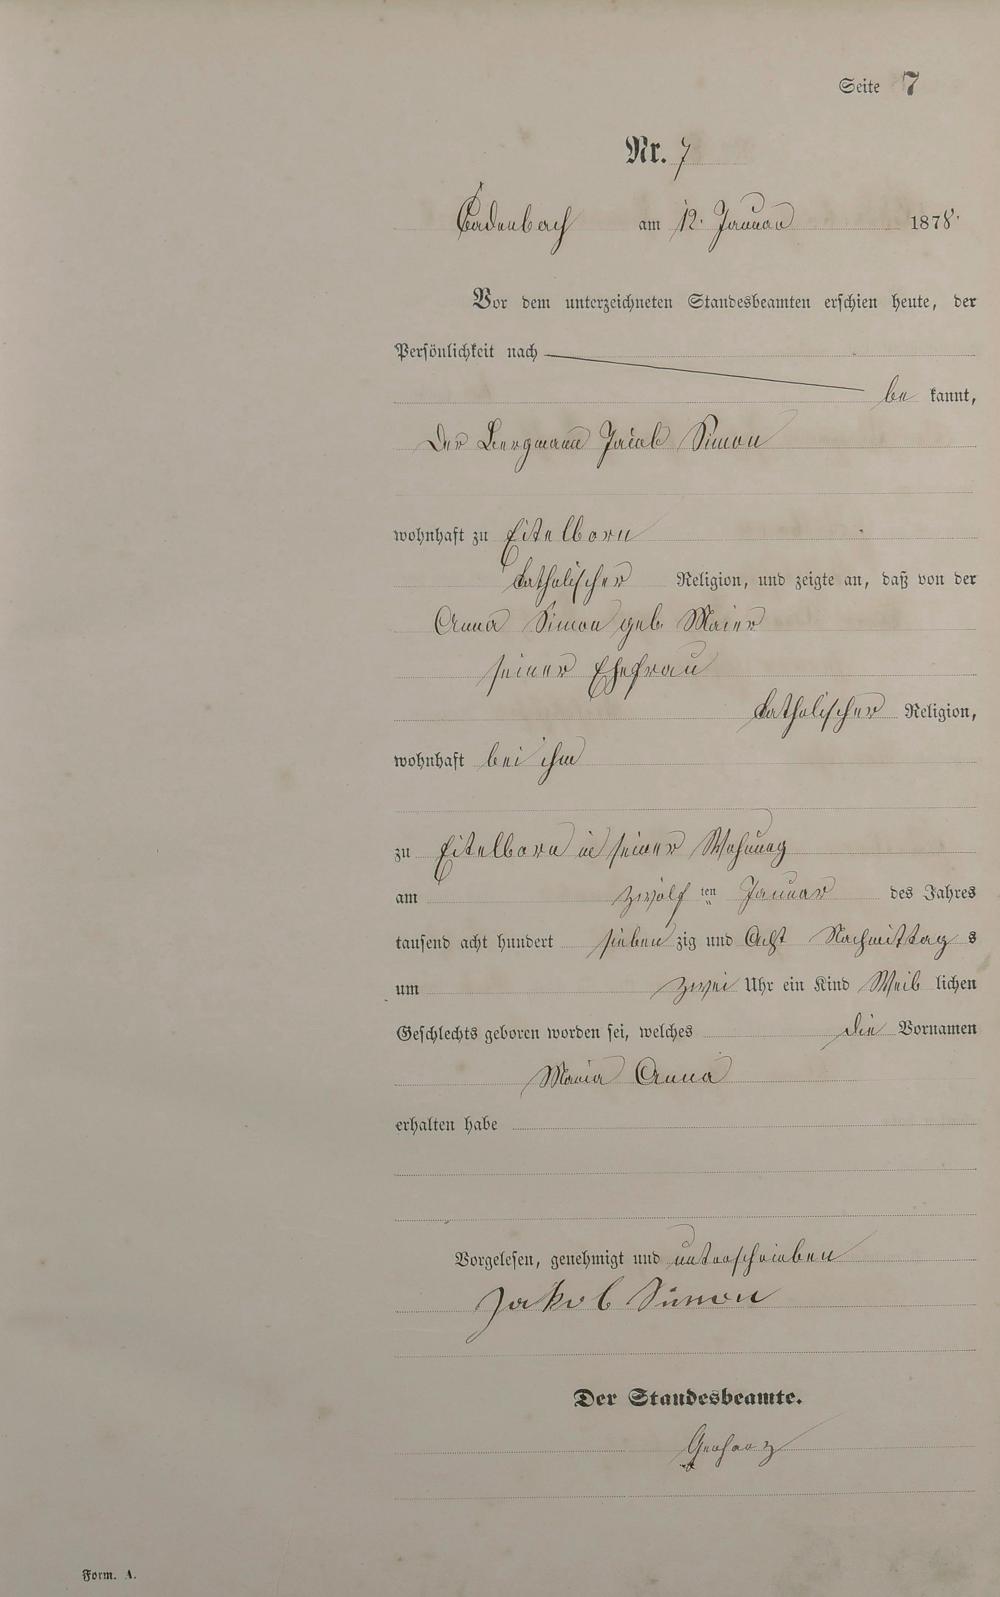 Seite 7
Nr. 7
Cadenbach am 12. Januar 1878.
Vor dem unterzeichneten Standesbeamten erschien heute, der
Persönlichkeit nach
be kannt,
Der Bergmann Jacob Simon
wohnhaft zu Eitelborn
katholischer Religion, und zeigte an, daß von der
Anna Simon geb Maier
seiner Ehefrau
katholischer Religion,
wohnhaft bei ihm
zu Eitelborn in seiner Wohnung
am zwölf ten Januar des Jahres
tausend acht hundert sieben zig und Acht Nachmittag s
um zwei Uhr ein Kind Weib lichen
Geschlechts geboren worden sei, welches die Vornamen
Maria Anna
erhalten habe
Vorgelesen, genehmigt und unterschrieben
Jakob Simon
Der Standesbeamte.
Gerharz
Form. A.